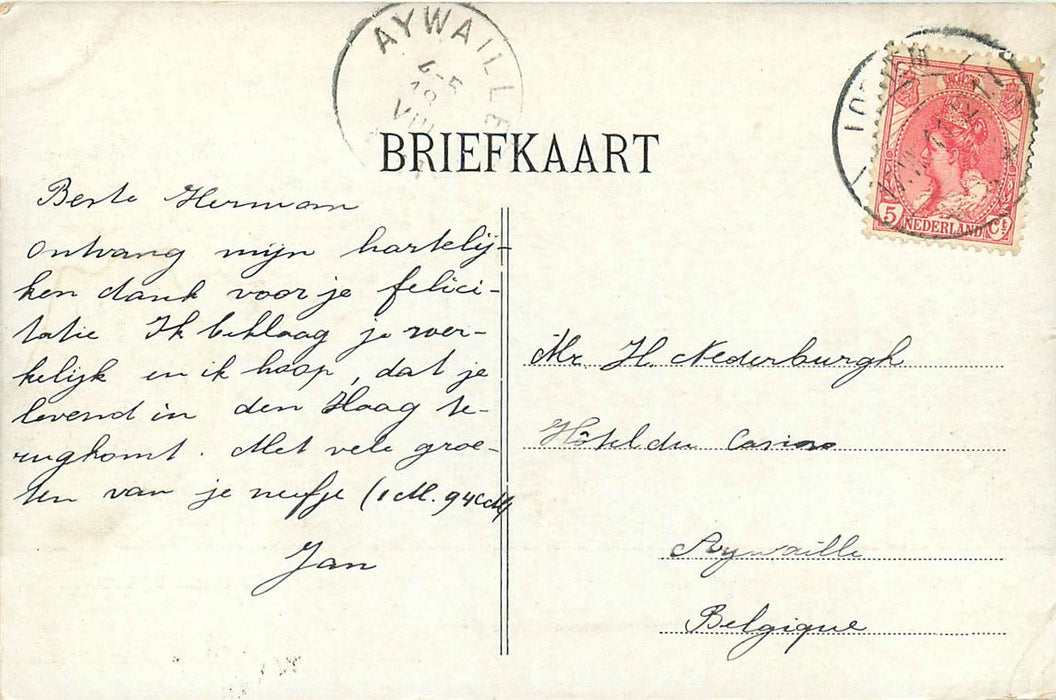 AYWAILLE
4-5
18
VIII
BRIEFKAART
5 NEDERLAND Ct
Beste Hermann
Ontvang mijn hartelij-
ken dank voor je felici-
tatie Ik beklaag je wer-
kelijk en ik hoop, dat je
levend in den Haag te-
rugkomt. Met vele groe-
ten van je neefje (1 M. 94 cM)
Jan
Mr. H. Nederburgh
Hôtel du Casino
Aywaille
Belgique